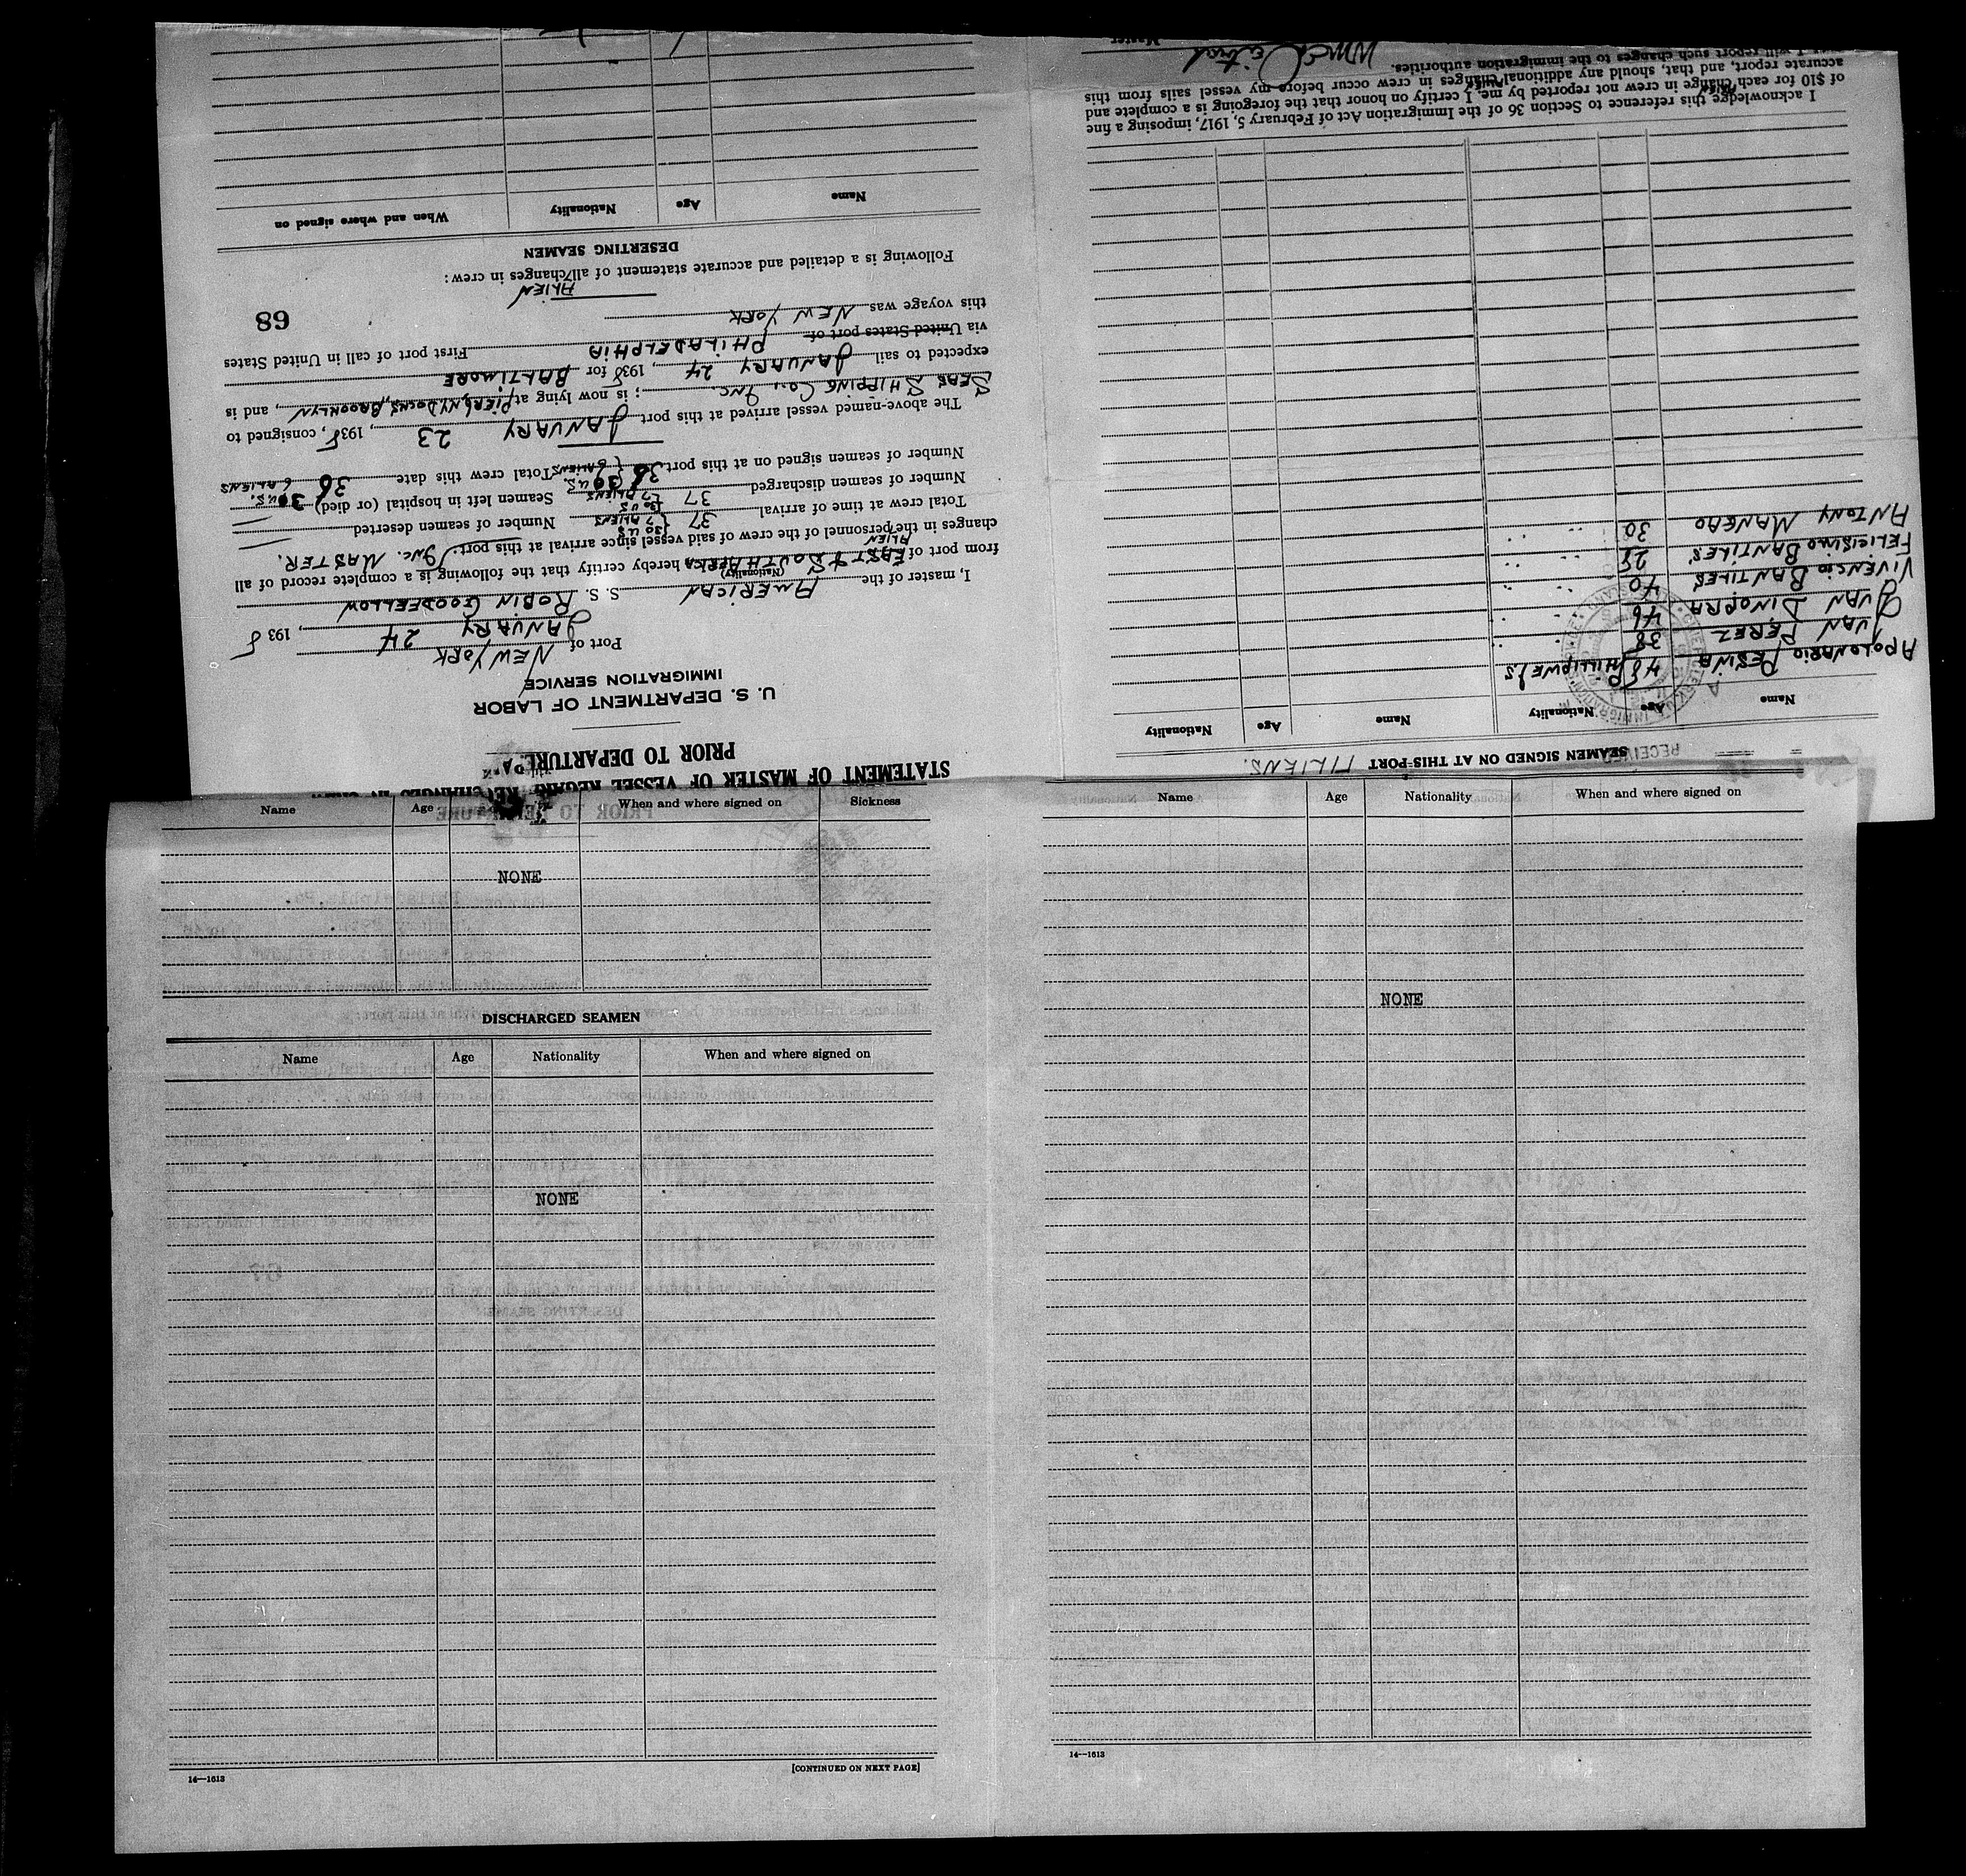 STATEMENT OF MASTER OF VESSEL REGARDING CHANGES IN
PRIOR TO DEPARTURE
U. S. DEPARTMENT OF LABOR
IMMIGRATION SERVICE
Port of NEW YORK
JANUARY 24, 1938
I, master of the AMERICAN S. S. ROBIN GOODFELLOW
(Nationality)
from port of EAST & SOUTH AFRICA hereby certify that the following is a complete record of all
ALIEN
changes in the personnel of the crew of said vessel since arrival at this port: INC. MASTER.
Total crew at time of arrival 37 {30 U.S. 7 ALIENS Number of seamen deserted
Number of seamen discharged 37 {30 U.S. 7 ALIENS Seamen left in hospital (or died)
Number of seamen signed on at this port 36 {30 U.S. 6 ALIENS Total crew this date 36 30 U.S. 6 ALIENS
The above-named vessel arrived at this port JANUARY 23, 1938, consigned to
SEAS SHIPPING CO., INC.; is now lying at PIER 6, NY DOCKS, BROOKLYN, and is
expected to sail JANUARY 24, 1938 for BALTIMORE
via United States port of PHILADELPHIA First port of call in United States
this voyage was NEW YORK
68
ALIEN
Following is a detailed and accurate statement of all changes in crew:
DESERTING SEAMEN
Name Age Nationality When and where signed on
RECEIVED
SEAMEN SIGNED ON AT THIS PORT ALIENS.
Name Age Nationality Name Age Nationality
APOLONARIO RESINA 48 PHILLIPINE IS
JUAN PEREZ 38 "
JUAN DINOPRA 46
VIVENCIO BANTILES 40 " "
FELICISIMO BANTILES 25 " "
ANTONY MANGAO 30 " "
I acknowledge this reference to Section 36 of the Immigration Act of February 5, 1917, imposing a fine
of $10 for each ALIEN change in crew not reported by me. I certify on honor that the foregoing is a complete and
accurate report, and that, should any additional ALIEN changes in crew occur before my vessel sails from this
I will report such changes to the immigration authorities.
Master
Name Age When and where signed on Sickness
NONE
DISCHARGED SEAMEN
Name Age Nationality When and where signed on
NONE
14—1613
[CONTINUED ON NEXT PAGE]
Name Age Nationality When and where signed on
NONE
14—1613